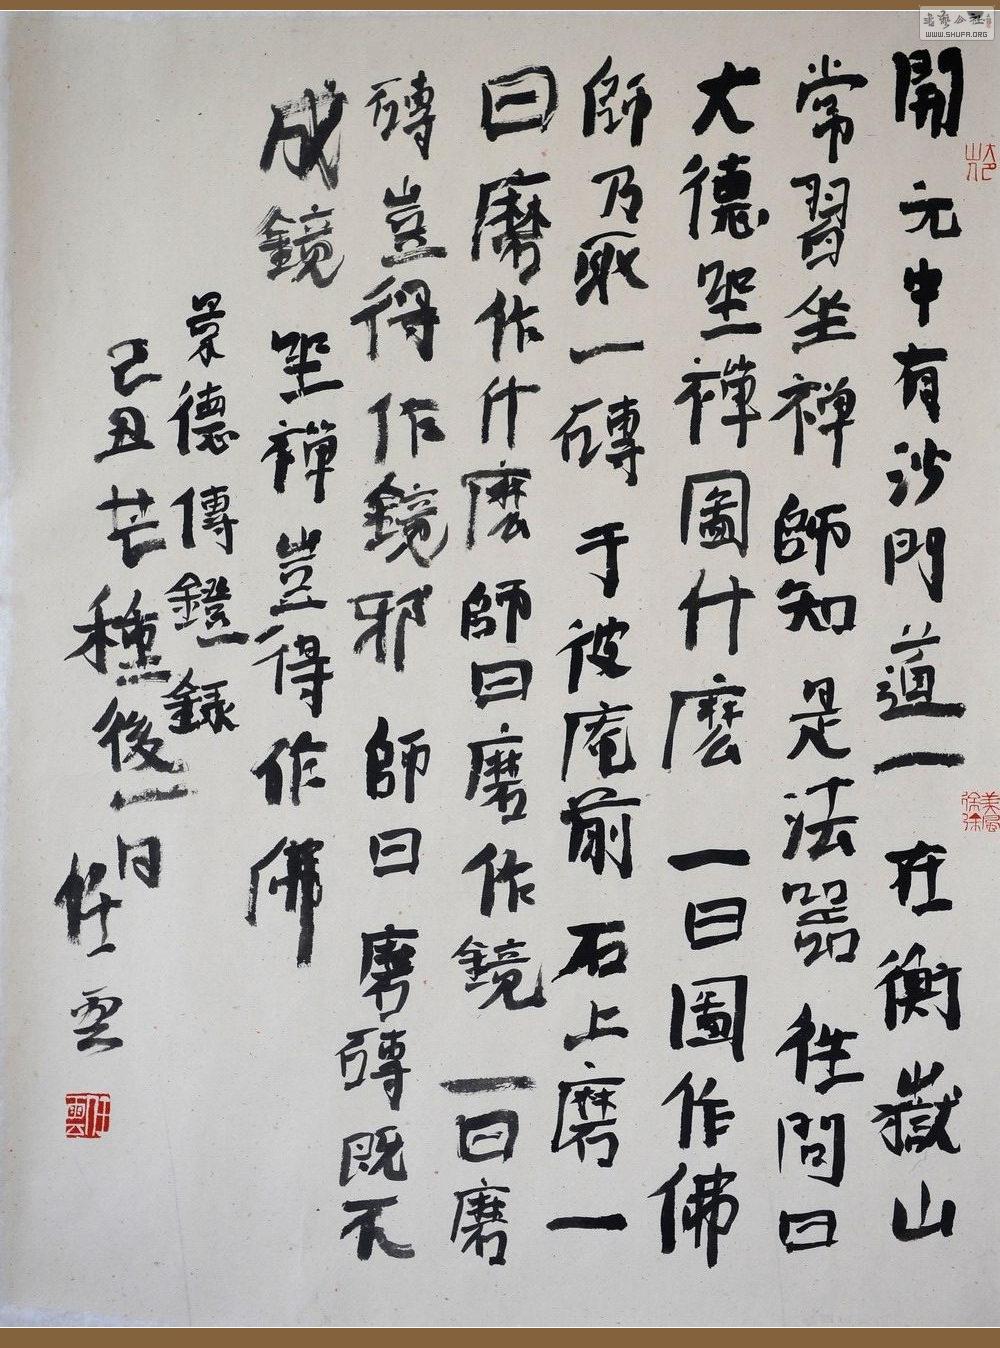 開元中有沙門道一在衡嶽山
常習坐禅師知是法器往問曰
大德坐禪圖什麽一曰圖作佛
師乃取一磚于彼庵前石上磨一
曰磨作什麽師曰磨作鏡一曰磨
磚豈得作鏡邪師曰磨磚既不
成鏡坐禪豈得作佛
景德傳鐙録
己丑芒種後一日任雲
任雲
WWW.SHUFA.ORG